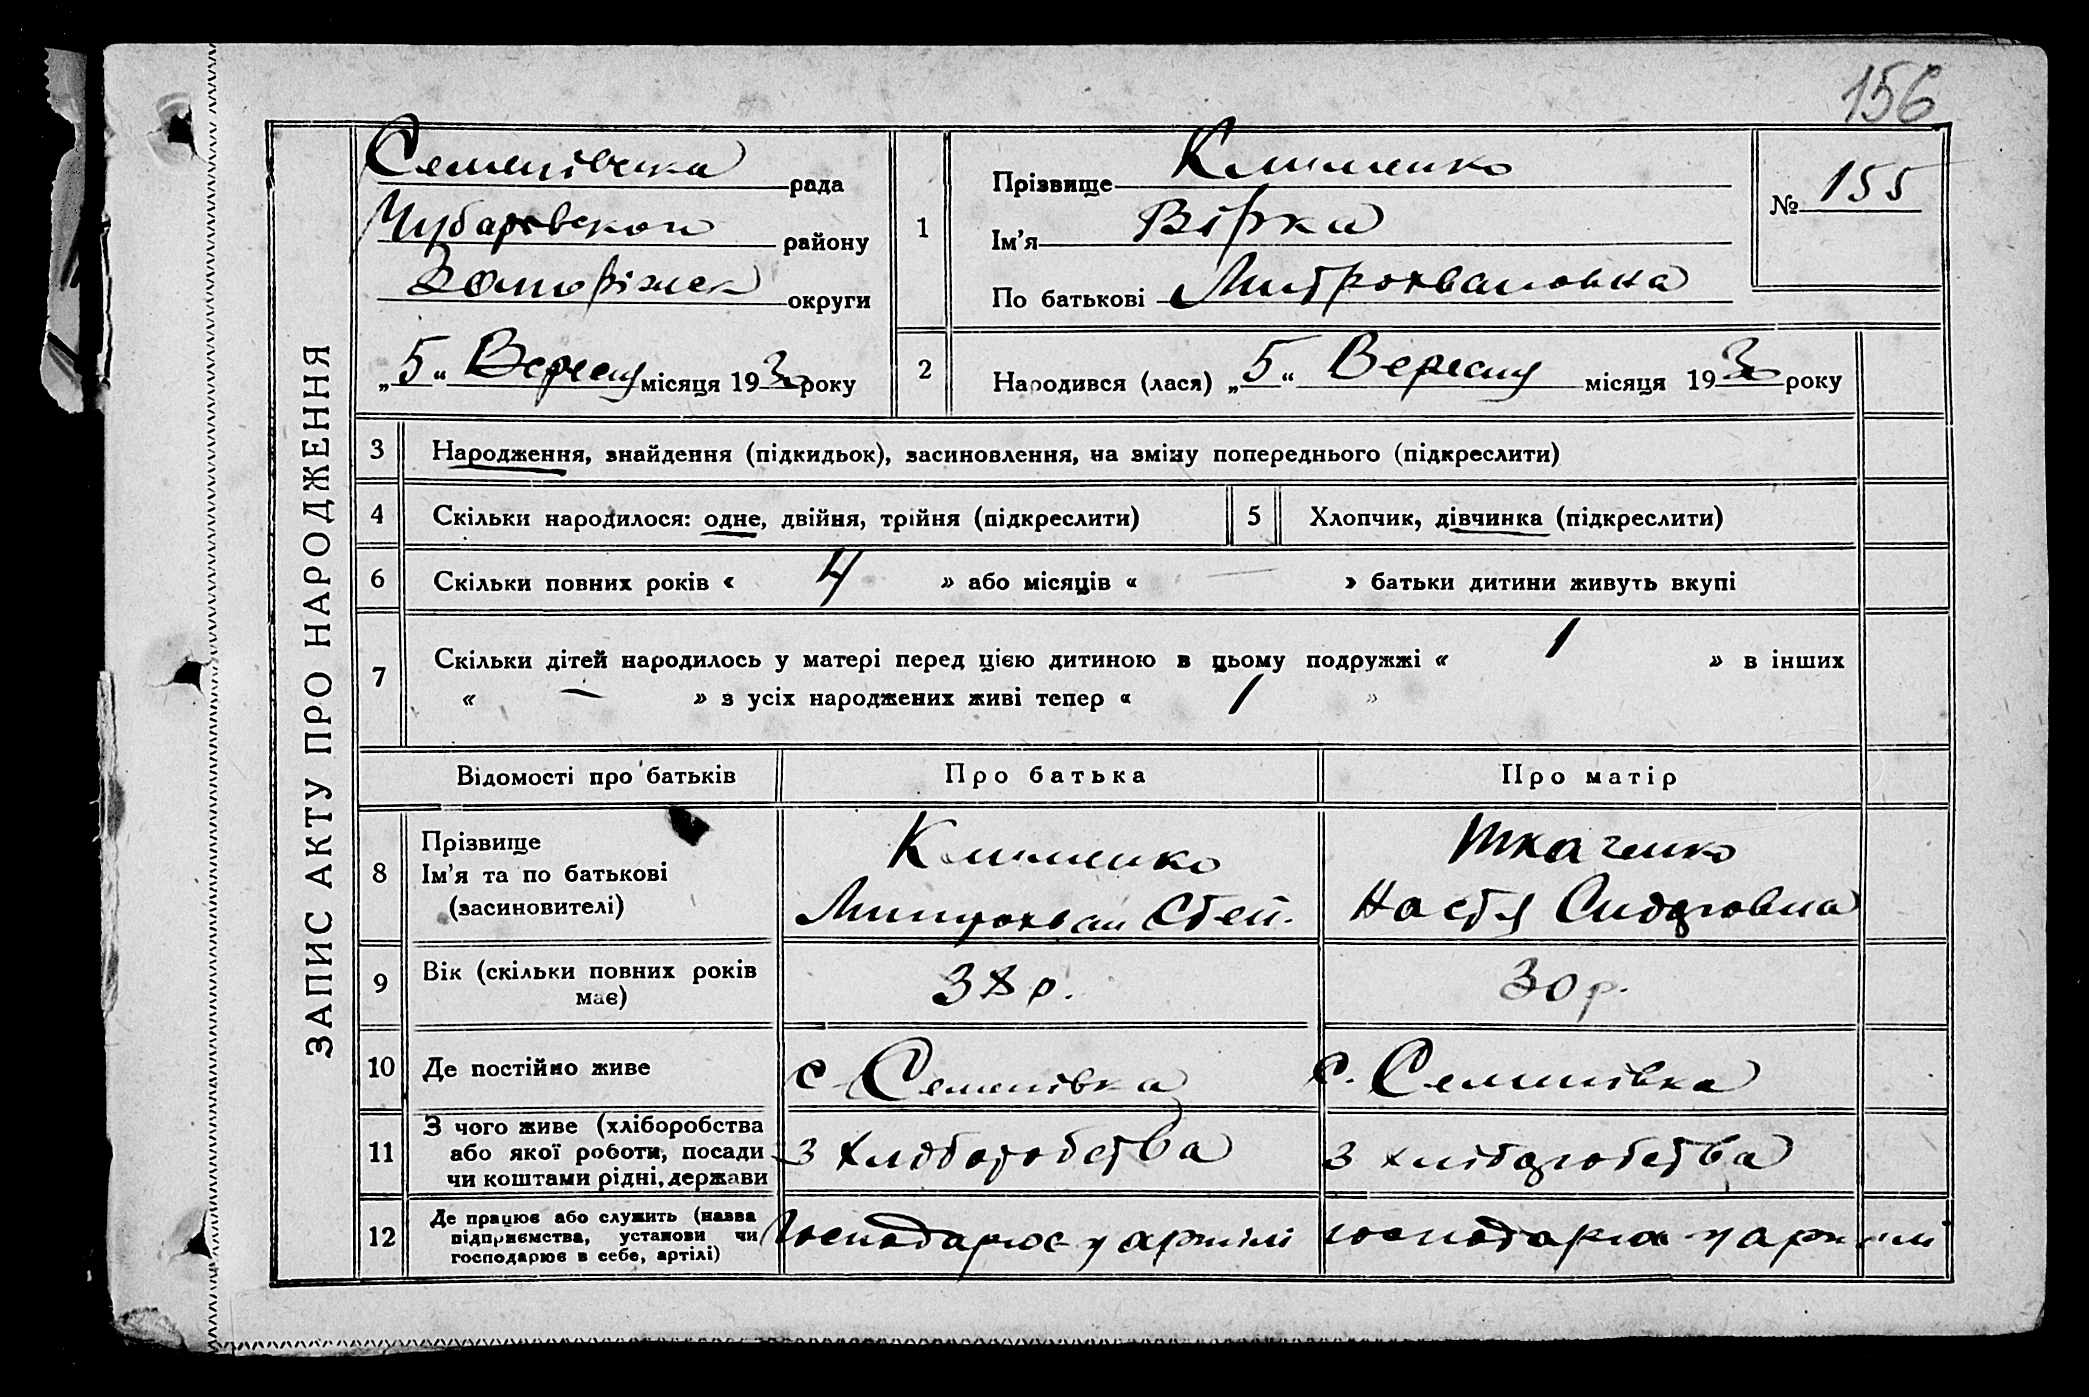 156
ЗАПИС АКТУ ПРО НАРОДЖЕННЯ
Семенівська рада
Чубаровского району
Запоріжск округи
„5“ Вересня місяця 1930 року
1
Прізвище Клименко
Ім’я Вірка
По батькові Митрохвановна
№ 155
2
Народився (лася) „5“ Вересня місяця 1930 року
3 Народження, знайдення (підкидьок), засиновлення, на зміну попереднього (підкреслити)
4 Скільки народилося: одне, двійня, трійня (підкреслити)
5 Хлопчик, дівчинка (підкреслити)
6 Скільки повних років « 4 » або місяців « — » батьки дитини живуть вкупі
7 Скільки дітей народилось у матері перед цією дитиною в цьому подружжі « 1 » в інших
« — » з усіх народжених живі тепер « 1 »
Відомості про батьків Про батька Про матір
8 Прізвище
Ім’я та по батькові
(засиновителі)
Клименко
Митрохван Степ.
Ткаченко
Настя Сидоровна
9 Вік (скільки повних років
має)
38 р.
30 р.
10 Де постійно живе
с. Семенівка
с. Семенівка
11 З чого живе (хліборобства
або якої роботи, посади
чи коштами рідні, держави
З хліборобства
З хліборобства
12 Де працює або служить (назва
підприємства, установи чи
господарює в себе, артілі)
Господарює у артілі
господарює у артілі